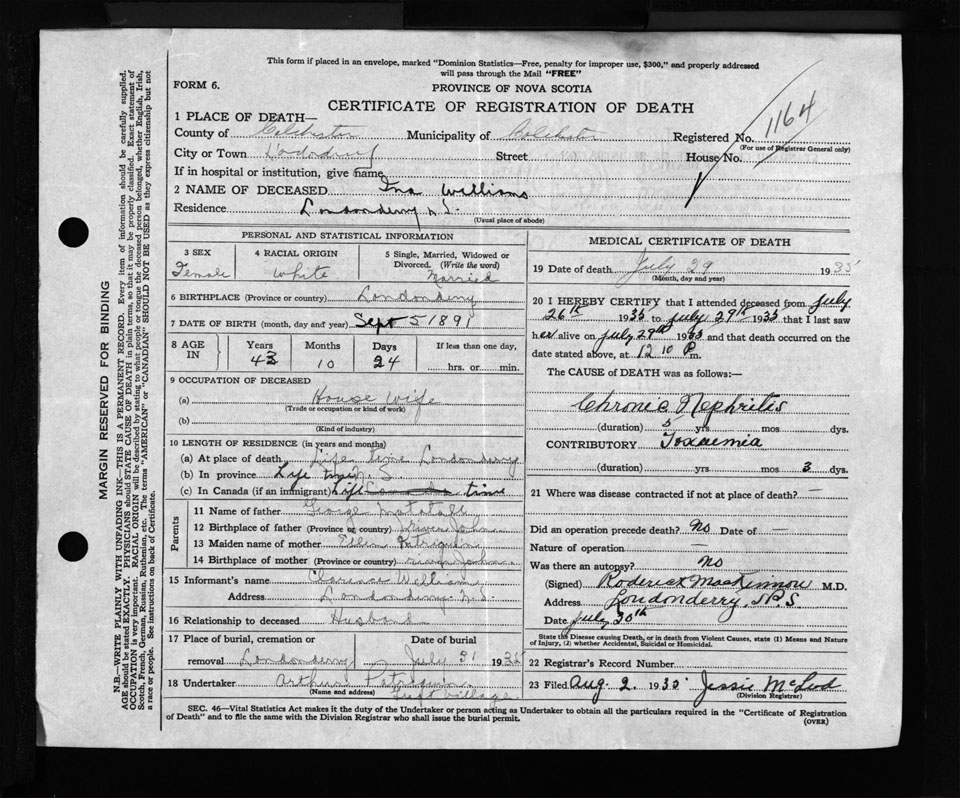 This form if placed in an envelope, marked "Dominion Statistics—Free, penalty for improper use, $300," and properly addressed
will pass through the Mail "FREE"
FORM 6.
PROVINCE OF NOVA SCOTIA
CERTIFICATE OF REGISTRATION OF DEATH
1164
1 PLACE OF DEATH—
County of Colchester Municipality of Colchester Registered No.
(For use of Registrar General only)
City or Town Street House No.
If in hospital or institution, give name
2 NAME OF DECEASED Ina Williams
Residence Londonderry N.S.
(Usual place of abode)
PERSONAL AND STATISTICAL INFORMATION
3 SEX 4 RACIAL ORIGIN 5 Single, Married, Widowed or
Divorced. (Write the word)
Female White Married
6 BIRTHPLACE (Province or country) Londonderry
7 DATE OF BIRTH (month, day and year) Sept 5 1891
8 AGE IN Years Months Days If less than one day,
43 10 24 hrs. or min.
9 OCCUPATION OF DECEASED
(a) House wife
(Trade or occupation or kind of work)
(b)
(Kind of industry)
10 LENGTH OF RESIDENCE (in years and months)
(a) At place of death Life time Londonderry
(b) In province Life time N.S
(c) In Canada (if an immigrant) Life time
Parents
11 Name of father George
12 Birthplace of father (Province or country) John
13 Maiden name of mother Ellen
14 Birthplace of mother (Province or country)
15 Informant's name Clarence Williams
Address Londonderry N.S.
16 Relationship to deceased Husband
17 Place of burial, cremation or Date of burial
removal Londonderry July 31 1935
18 Undertaker Arthur
(Name and address) East Village
MEDICAL CERTIFICATE OF DEATH
19 Date of death July 29 1935
(Month, day and year)
20 I HEREBY CERTIFY that I attended deceased from July
26th 1935 to July 29th 1935 that I last saw
her alive on July 29th 1935 and that death occurred on the
date stated above, at 12 10 P m.
The CAUSE of DEATH was as follows:—
Chronic Nephritis
(duration) 5 yrs mos dys.
CONTRIBUTORY Toxaemia
(duration) yrs mos 3 dys.
21 Where was disease contracted if not at place of death? —
Did an operation precede death? No Date of —
Nature of operation —
Was there an autopsy? No
(Signed) Roderick MacKinnon M.D.
Address Londonderry, N.S
Date July 30th
State the Disease causing Death, or in death from Violent Causes, state (1) Means and Nature
of Injury, (2) whether Accidental, Suicidal or Homicidal.
22 Registrar's Record Number
23 Filed Aug. 2. 1935 Jessie McLeod
(Division Registrar)
SEC. 46—Vital Statistics Act makes it the duty of the Undertaker or person acting as Undertaker to obtain all the particulars required in the "Certificate of Registration
of Death" and to file the same with the Division Registrar who shall issue the burial permit.
(OVER)
MARGIN RESERVED FOR BINDING
N.B.—WRITE PLAINLY WITH UNFADING INK—THIS IS A PERMANENT RECORD. Every item of information should be carefully supplied.
AGE should be stated EXACTLY. PHYSICIANS should STATE CAUSE OF DEATH in plain terms, so that it may be properly classified. Exact statement of
OCCUPATION is very important. RACIAL ORIGIN will be described by stating to what people or tongue the deceased person belonged, whether English, Irish,
Scotch, French, German, Russian, Ruthenian, etc. The terms "AMERICAN" or "CANADIAN" SHOULD NOT BE USED as they express citizenship but not
a race or people. See instructions on back of Certificate.